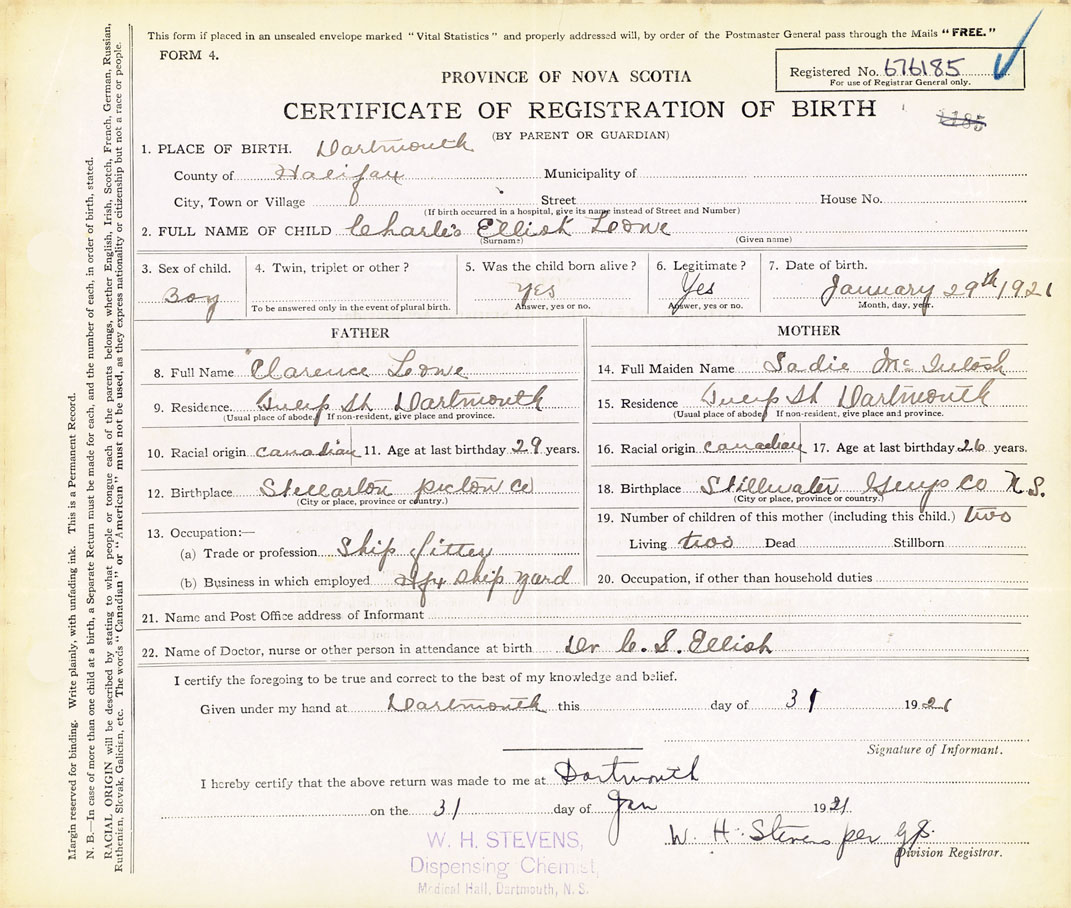 This form if placed in an unsealed envelope marked "Vital Statistics" and properly addressed will, by order of the Postmaster General pass through the Mails "FREE."
FORM 4.
Registered No. 676185
For use of Registrar General only.
PROVINCE OF NOVA SCOTIA
CERTIFICATE OF REGISTRATION OF BIRTH
(BY PARENT OR GUARDIAN)
1. PLACE OF BIRTH. Dartmouth
County of Halifax Municipality of
City, Town or Village Street House No.
(If birth occurred in a hospital, give its name instead of Street and Number)
2. FULL NAME OF CHILD Charles Elliot Lowe
(Surname) (Given name)
3. Sex of child. 4. Twin, triplet or other? 5. Was the child born alive? 6. Legitimate? 7. Date of birth.
Boy Yes Yes January 29th 1921
To be answered only in the event of plural birth. Answer, yes or no. Answer, yes or no. Month, day, year.
FATHER
8. Full Name Clarence Lowe
9. Residence. Tulip St Dartmouth
(Usual place of abode. If non-resident, give place and province.
10. Racial origin canadian 11. Age at last birthday 29 years.
12. Birthplace Stellarton pictow co
(City or place, province or country.)
13. Occupation:—
(a) Trade or profession Ship fitter
(b) Business in which employed Hfx Ship yard
MOTHER
14. Full Maiden Name Sadie Mc Intosh
15. Residence Tulip St Dartmouth
(Usual place of abode. If non-resident, give place and province.
16. Racial origin canadian 17. Age at last birthday 26 years.
18. Birthplace Stillwater Guys Co N.S.
(City or place, province or country.)
19. Number of children of this mother (including this child.) two
Living two Dead Stillborn
20. Occupation, if other than household duties
21. Name and Post Office address of Informant
22. Name of Doctor, nurse or other person in attendance at birth Dr C. S. Elliot
I certify the foregoing to be true and correct to the best of my knowledge and belief.
Given under my hand at Dartmouth this day of 31 1921
Signature of Informant.
I hereby certify that the above return was made to me at Dartmouth
on the 31 day of Jan 1921
W. H. Stevens per
Division Registrar.
W. H. STEVENS,
Dispensing Chemist,
Medical Hall, Dartmouth, N. S.
Margin reserved for binding. Write plainly, with unfading ink. This is a Permanent Record.
N. B.—In case of more than one child at a birth, a Separate Return must be made for each, and the number of each, in order of birth, stated.
RACIAL ORIGIN will be described by stating to what people or tongue each of the parents belongs, whether English, Irish, Scotch, French, German, Russian,
Ruthenian, Slovak, Galician, etc. The words "Canadian" or "American" must not be used, as they express nationality or citizenship but not a race or people.